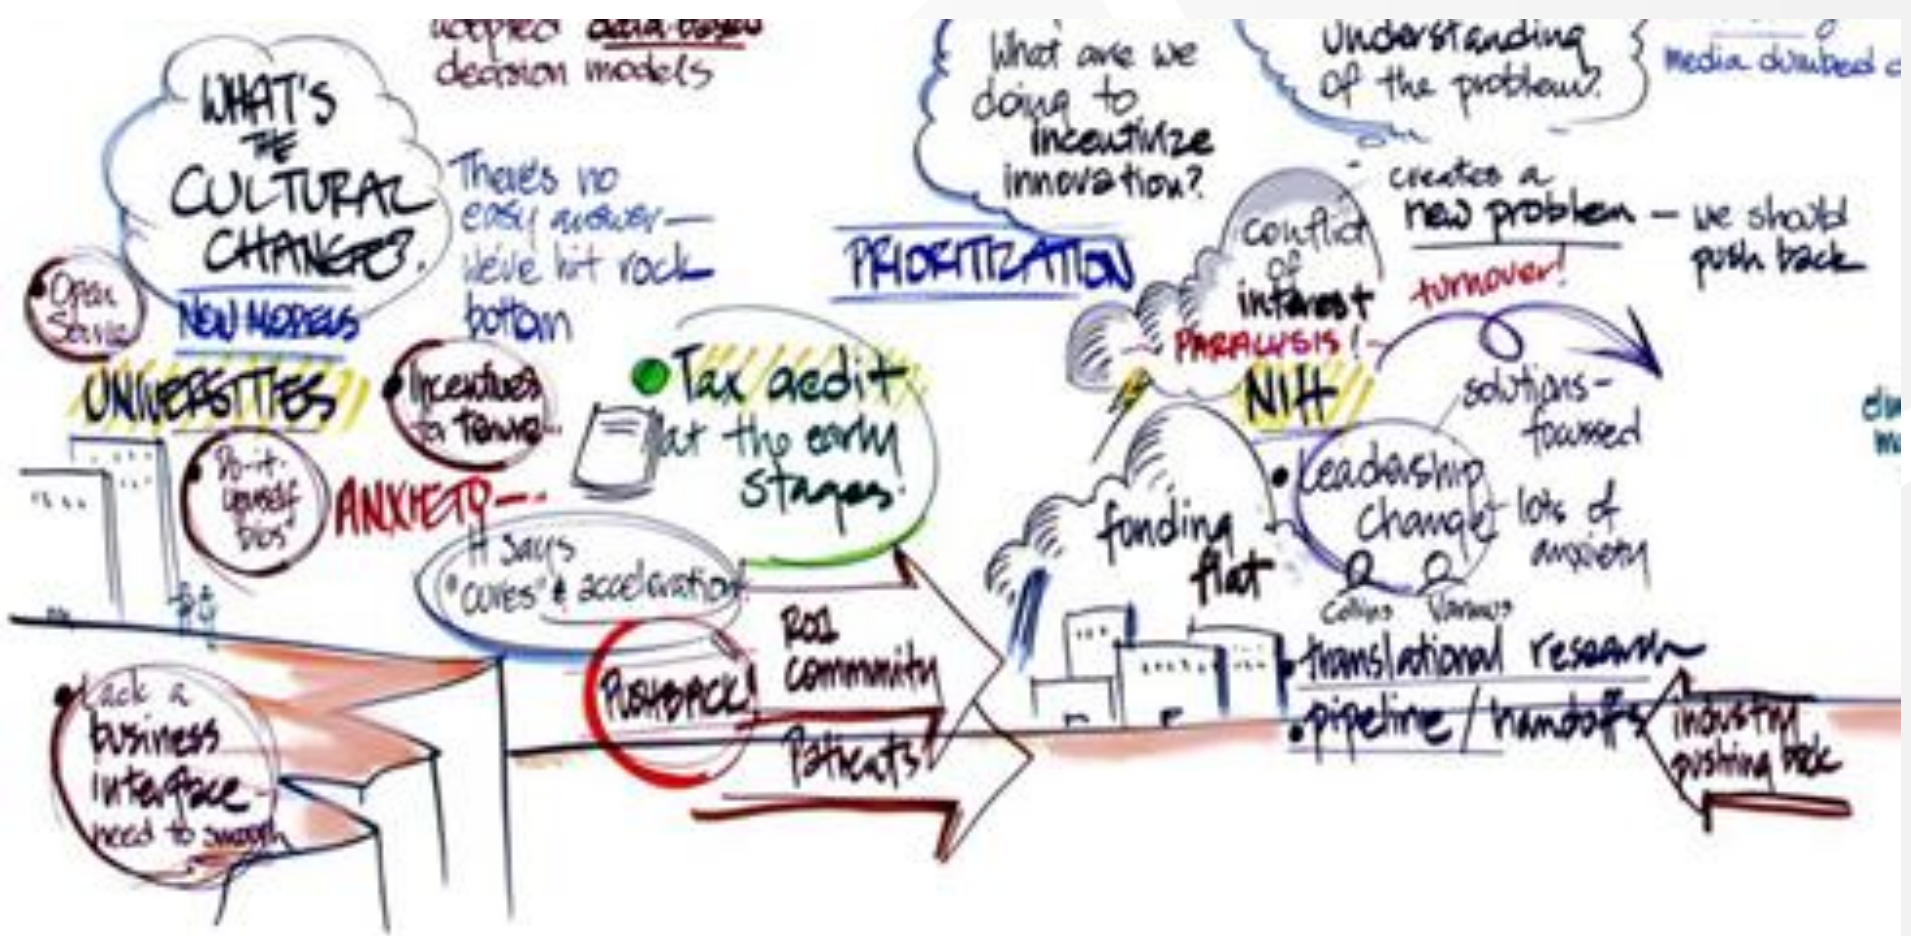 adopted data-based
decision models
WHAT'S
THE
CULTURAL
CHANGE?
NEW MODELS
There's no
easy answer—
We've hit rock
bottom
Open
UNIVERSITIES
Incentives
Do-it-
yourself
ANXIETY
Tax credit
at the early
stages.
It says
"cures" & acceleration
PUSHBACK!
ROI
community
Patients
Lack a
business
interface
need to smooth
What are we
doing to
incentivize
innovation?
PRIORITIZATION
understanding
of the problem?
media dumbed
creates a
new problem — we should
push back
conflict
of
interest
PARALYSIS!
turnover!
NIH
solutions-
focussed
Leadership
Change
lots of
anxiety
Collins Varmus
funding
flat
translational research
pipeline / handoffs
industry
pushing back